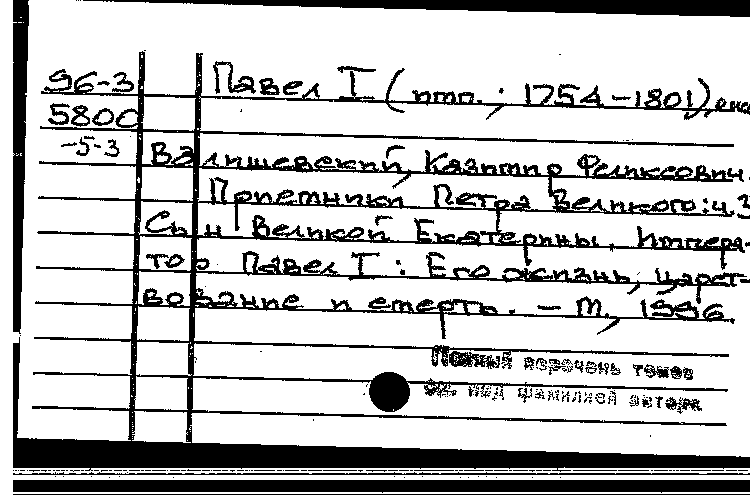 96-3 Павел I (имп.; 1754-1801),
5800
-5-3
Валишевский, Казимир Феликсович.
Приемники Петра Великого: ч.3
Сын Великой Екатерины. Импера-
тор Павел I: Его жизнь, царст-
вование и смерть. - М., 1996.
Полный перечень томов
см. под фамилией автора